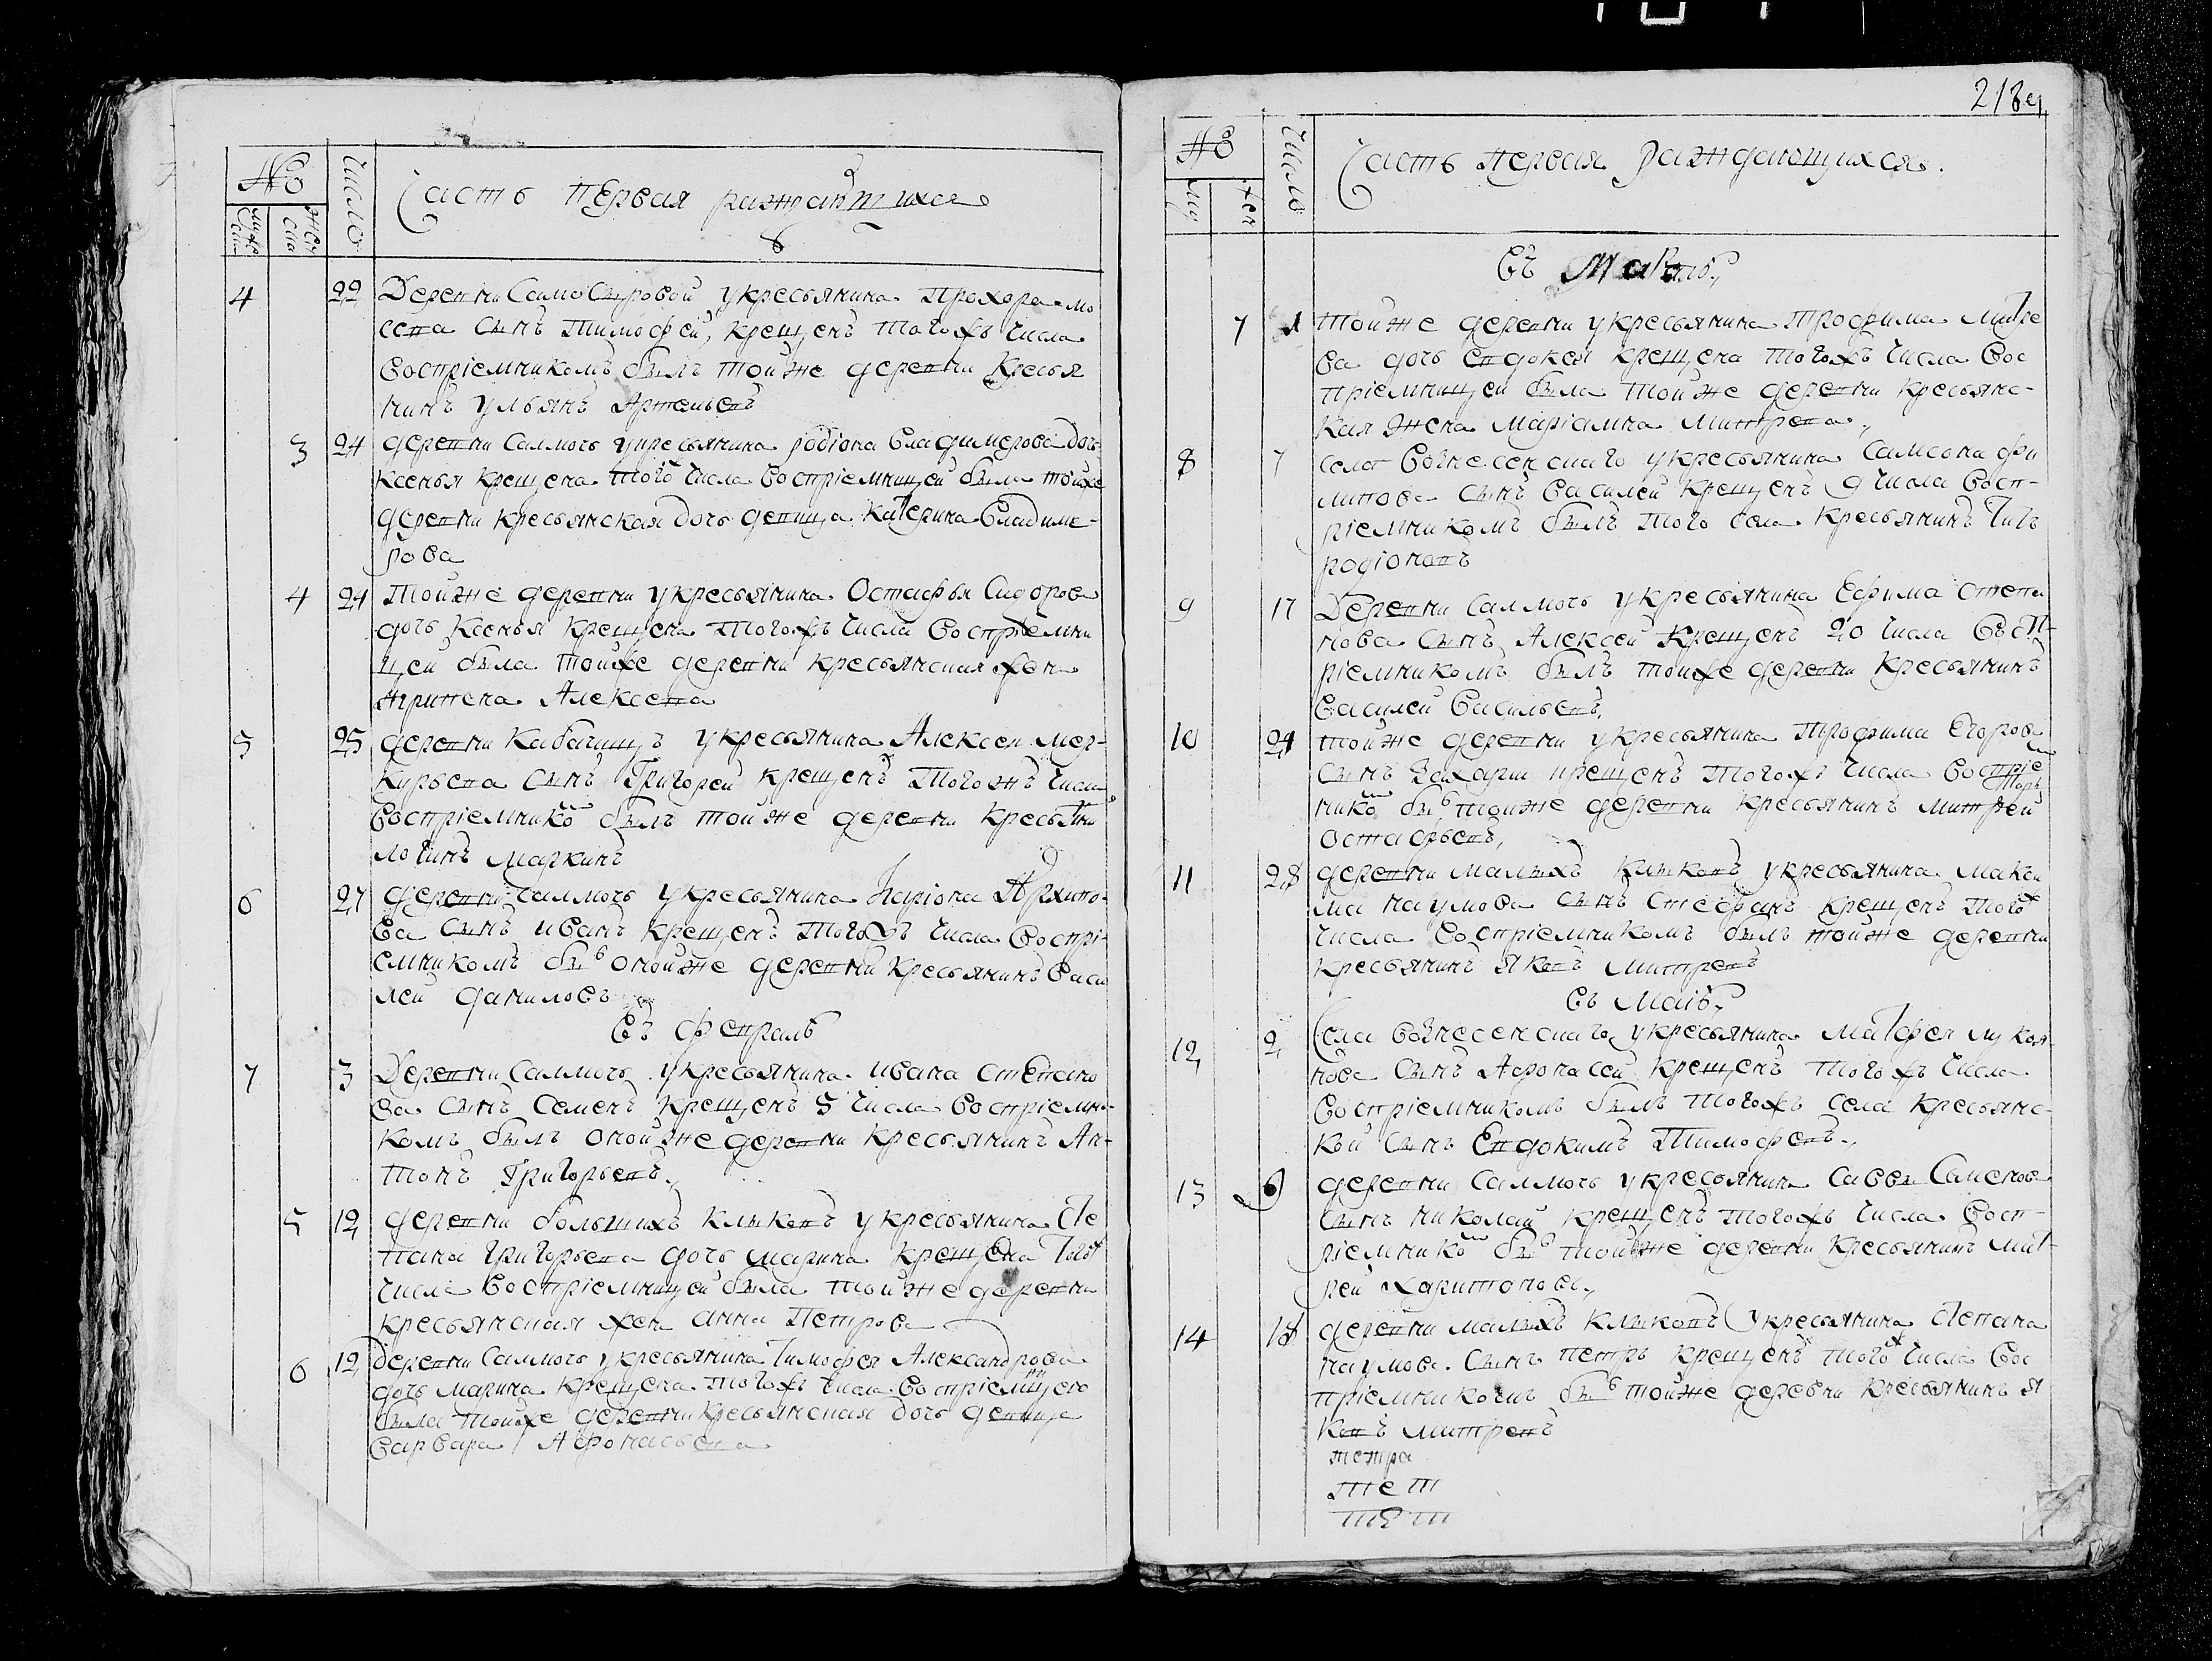 №
Число
Часть первая раждающихся
муже
ска
жен
ска
4 22 Деревни Самосыровой укресьянина Прохора мо
сева сынъ тимофей, крещенъ тогожъ числа
воспріемникомъ былъ тойже деревни кресья
нинъ ульянъ Артемьевъ
3 24 деревни Салмочь укресьянина родіона владимерова дочь
ксенья крещена того числа воспріемницей была тойже
деревни кресьянская дочь девица катерина владиме-
рова
4 24 тойже деревни укресьянина Остафья Сидорова
дочь ксенья крещена тогожъ числа воспріемни
цей была тойже деревни кресьянская жена
Агрипена Алексева
5 25 деревни кабачищъ укресьянина Алексея мер-
курьева сынъ Григорей крещенъ тогожъ числа
воспріемнико былъ тойже деревни кресьяни
логинъ маркинъ
6 27 деревни салмочь укресьянина Ларіона Архипо-
ва сынъ иванъ крещенъ тогожъ числа воспрі-
емникомъ бы онойже деревни кресьянинъ васи
лей даниловъ
въ февраль
7 3 Деревни Салмочь укресьянина ивана степано
ва сынъ семенъ крещенъ 5 числа воспріемни-
комъ былъ онойже деревни кресьянинъ Ан-
тонъ Григорьевъ.,
5 12 деревни большихъ клыковъ укресьянина сте
пана григорьева дочь марина крещена тогож
числа воспріемницей была тойже деревни
кресьянская жен анна Петрова
6 12 деревни Салмочь укресьянина тимофея Александрова
дочь марина крещена тогожъ числа воспріемницею
была тойже деревни кресьянская дочь девица
варвара Афонасьева
218
№
Число
Часть первая раждающихся.
муж
жен
въ
7 1 тойже деревни укресьянина трофима митре
ва дочь евдокея крещена тогожъ числа вос
пріемницей была тойже деревни кресьянс-
кая жена маріамна митрева.,
8 7 села вознесенскаго укресьянина Самсона фи
липова сынъ василей крещенъ 9 числа восп-
ріемникомъ былъ того села кресьянинъ титъ
родіоновъ
9 17 Деревни Салмочь укресьянина Ефима степа
нова сынъ Алексей крещенъ 20 числа восп-
ріемникомъ былъ тойже деревни кресьянинъ
василей васильевъ,
10 24 тойже деревни укресьянина трофима Егорова
сынъ захаръ крещенъ тогожъ числа воспріем
нико бы тойже деревни кресьянинъ митрей
остафьевъ,
11 28 деревни малыхъ клыковъ укресьянина макси
ма наумова сынъ стефанъ крещенъ того
числа воспріемникомъ былъ тойже деревни
кресьянинъ яковъ митревъ
въ маіѣ,
12 2 села вознесенскаго укресьянина матфея лукоя-
нова сынъ Афонасей крещенъ тогожъ числа
воспріемникомъ былъ тогожъ села кресьянс-
кой сынъ Евдокимъ тимофеевъ.,
13 6 деревни Салмочь укресьянина савы Семенова
сынъ николай крещенъ тогожъ числа восп-
ріемнико бы тойже деревни кресьянинъ мит-
рей харитоновъ,
14 18 деревни малыхъ клыковъ укресьянина степана
наумова сынъ петръ крещенъ того числа вос
пріемникомъ бы тойже деревни кресьянинъ я
ковъ митревъ
петра